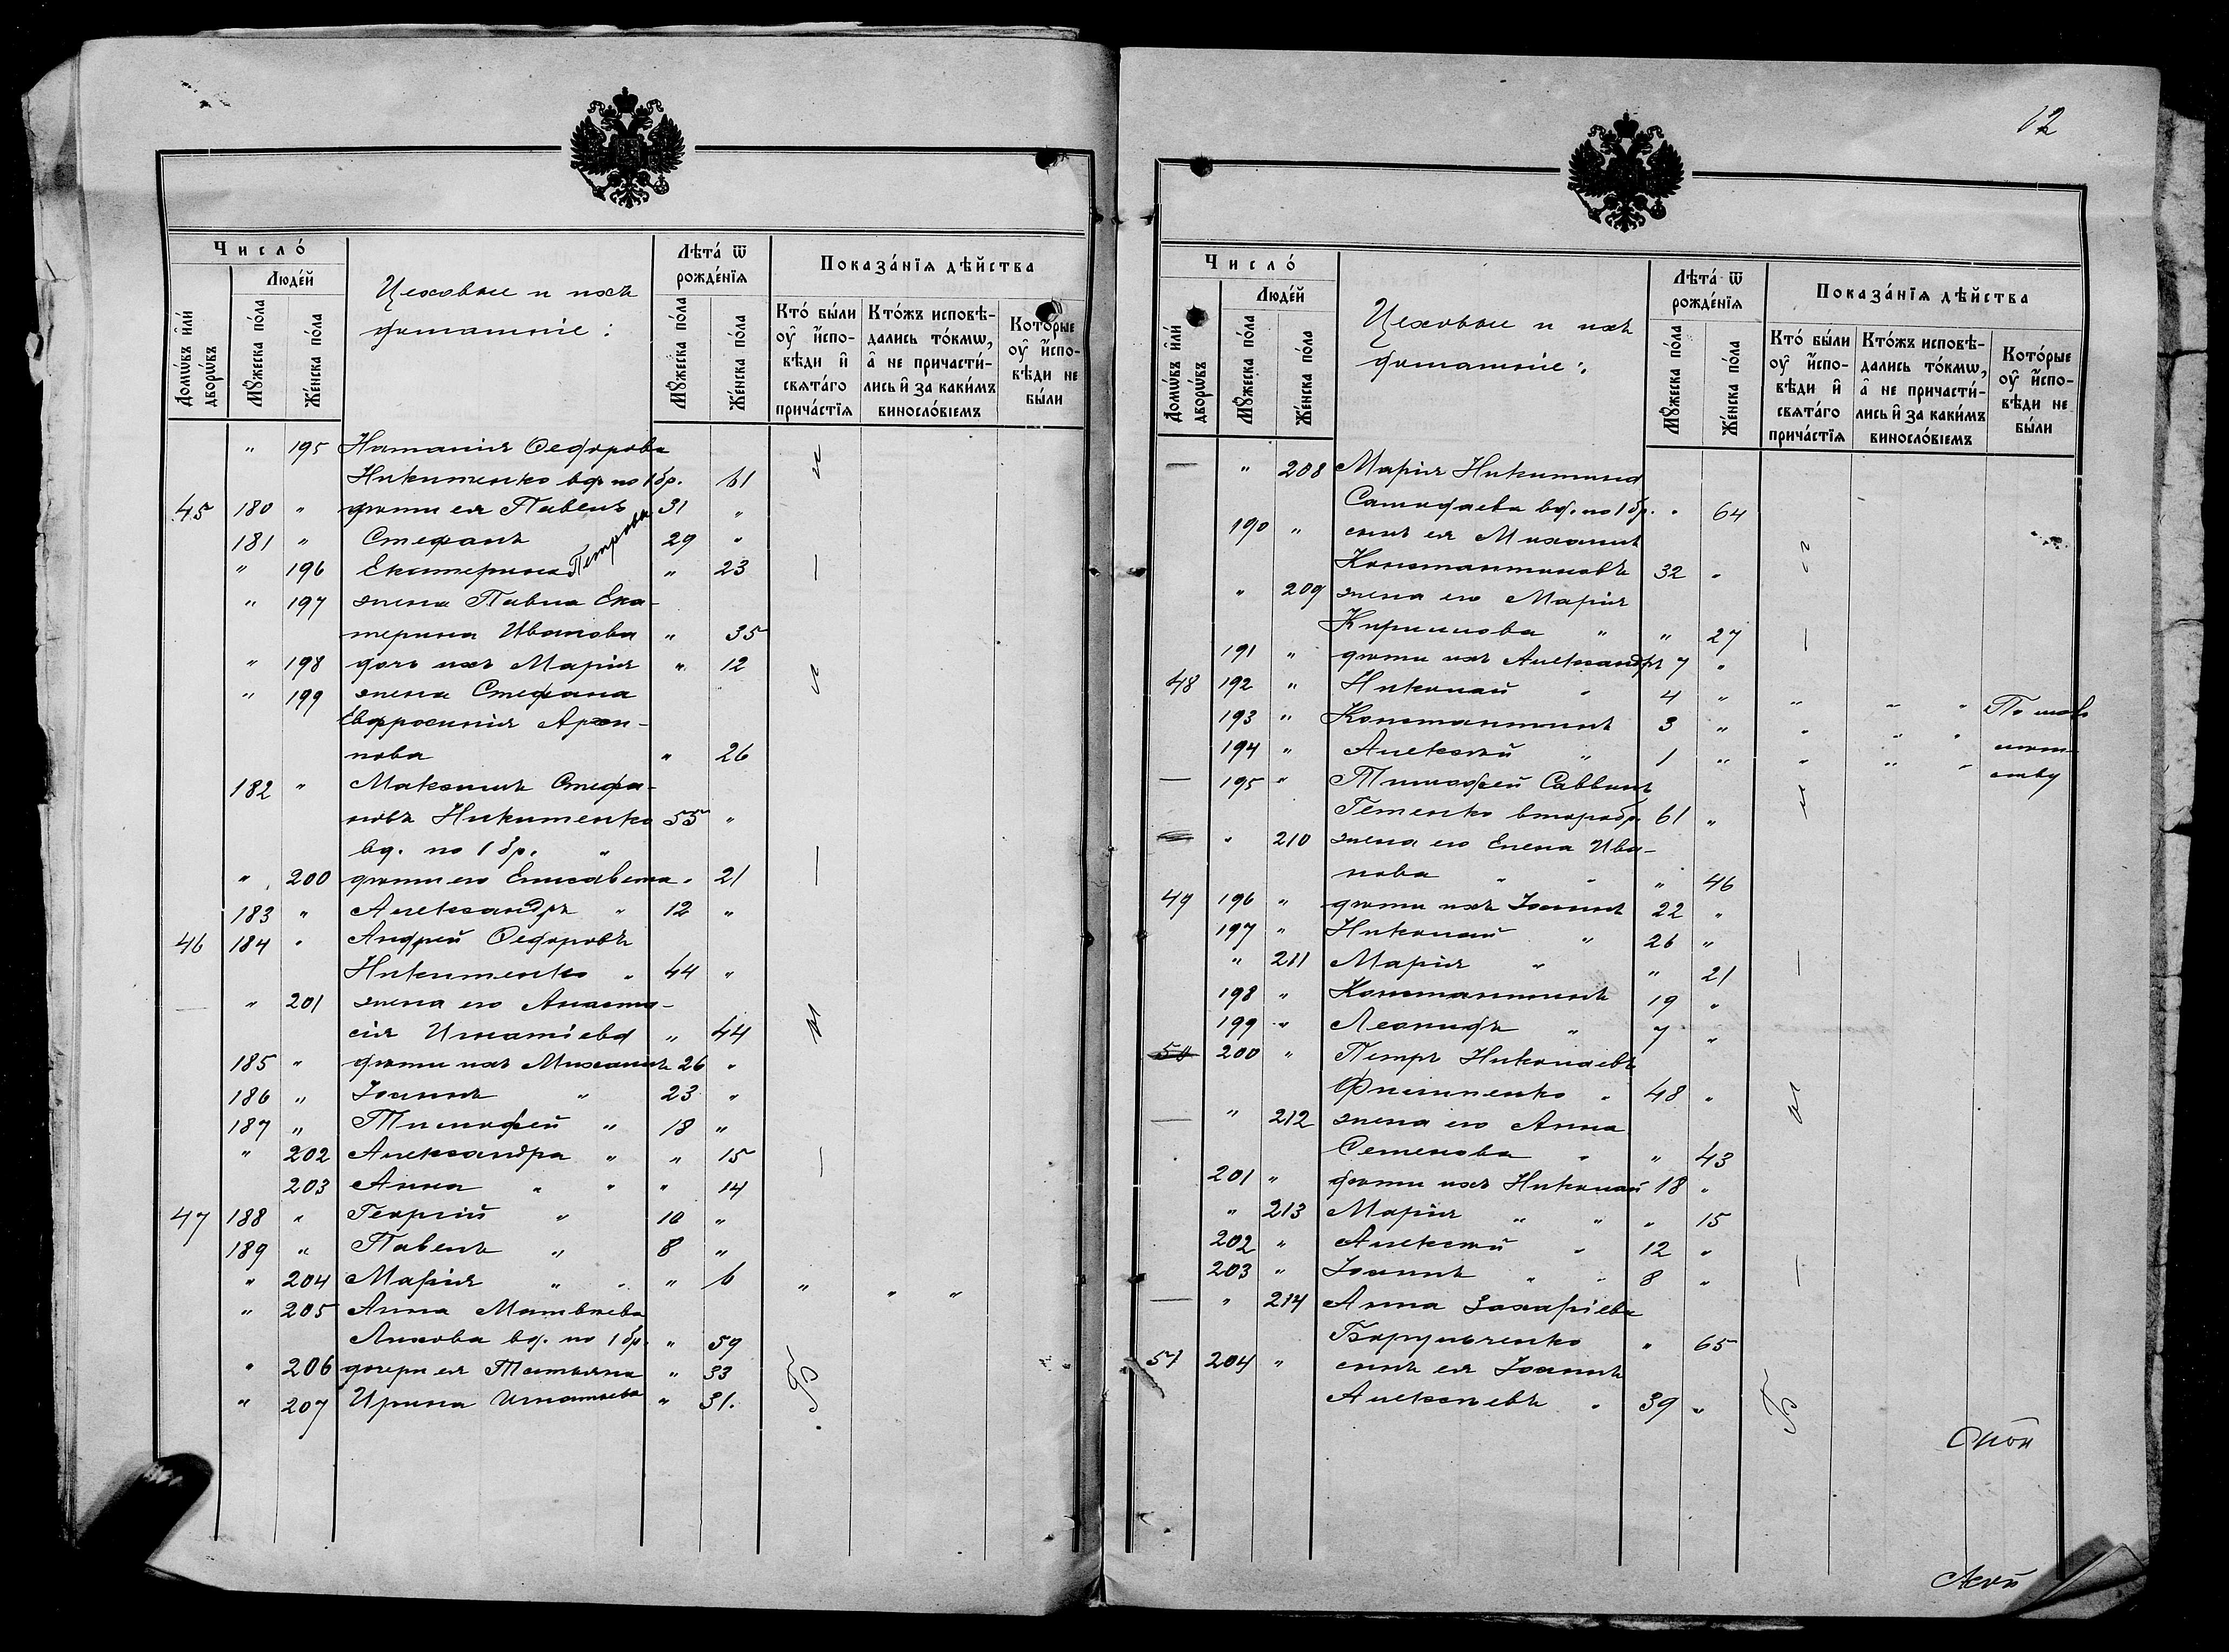 Число́
Люде́й
Домѡ́въ и҆лѝ дворѡ́въ
Мꙋ́жеска по́ла
Же́нска по́ла
Цеховые и ихъ
домашніе:
Лѣта́ ѿ
рожде́нїѧ
Мꙋ́жеска по́ла
Же́нска по́ла
Показа́нїѧ дѣ́йства
Кто́ бы́ли
ᲂу҆ и҆спо-
вѣди и҆
свѧта́го
прича́стїѧ
Кто́жъ исповѣ-
дались то́кмѡ,
а҆ не причасти́-
лись и҆ за каки́мъ
винослові́емъ
Кото́рые
ᲂу҆ и҆спо-
вѣди не
бы́ли
" 195 Наталія Ѳедорова
Никитенко вд. по 1 бр. 61
45 180 " дѣти ея Павелъ 31 "
181 " Стефанъ 29 "
" 196 Екатерина Петрова " 23
" 197 жена Павла Ека-
терина Иванова " 35
" 198 дочь ихъ Марія " 12
" 199 жена Стефана
Евфросинія Архи-
пова " 26
182 " Максимъ Стефа-
новъ Никитенко 55 "
вд. по 1 бр. "
" 200 дѣти его Елисавета " 21
183 " Александръ " 12 "
46 184 " Андрей Ѳедоровъ
Никитенко " 44 "
— " 201 жена его Анаста-
сія Игнатіева " 44
185 " дѣти ихъ Михаилъ 26 "
186 " Іоаннъ " 23 "
187 " Тимофей " 18 "
" 202 Александра " " 15
203 Анна " " " 14
47 188 " Георгій " 10 "
189 " Павелъ " 8 "
" 204 Марія " " " 6 " " "
" 205 Анна Матвѣева
Лихова вд. по 1 бр. " 59
" 206 дочери ея Татьяна " 33
" 207 Ирина Игнатьева " 31.
12
Число́
Люде́й
Домѡ́въ и҆лѝ дворѡ́въ
Мꙋ́жеска по́ла
Же́нска по́ла
Цеховые и ихъ
домашніе:
Лѣта́ ѿ
рожде́нїѧ
Мꙋ́жеска по́ла
Же́нска по́ла
Показа́нїѧ дѣ́йства
Кто́ бы́ли
ᲂу҆ и҆спо-
вѣди и҆
свѧта́го
прича́стїѧ
Кто́жъ исповѣ-
дались то́кмѡ,
а҆ не причасти́-
лись и҆ за каки́мъ
винослові́емъ
Кото́рые
ᲂу҆ и҆спо-
вѣди не
бы́ли
— " 208 Марія Никитина
вд. по 1 бр. " 64
190 " сынъ ея Михаилъ
Константиновъ 32 "
" 209 жена его Марія
Кириллова " " 27
191 " дѣти ихъ Александръ 7 "
48 192 " Николай " 4 " " " " По мало
193 " Константинъ 3 " " " " лѣт
194 " Алексѣй " 1 " " " " ству
— 195 " Тимофей Саввинъ
второбр. 61 "
" 210 жена его Елена Ива-
нова " " " 46
49 196 " дѣти ихъ Іоаннъ 22 "
197 " Николай " 26 "
" 211 Марія " " 21
198 " Константинъ 19 "
199 " Леонидъ " 7 "
50 200 " Петръ Николаевъ
Филипенко " 48 "
— " 212 жена его Анна
Семенова " " 43
201 " дѣти ихъ Николай 18 "
" 213 Марія " " " 15
202 " Алексѣй " 12 "
203 " Іоаннъ " " 8 "
— " 214 Анна Захаріева
" 65
51 204 " сынъ ея Іоаннъ
Алексѣевъ " 39 "